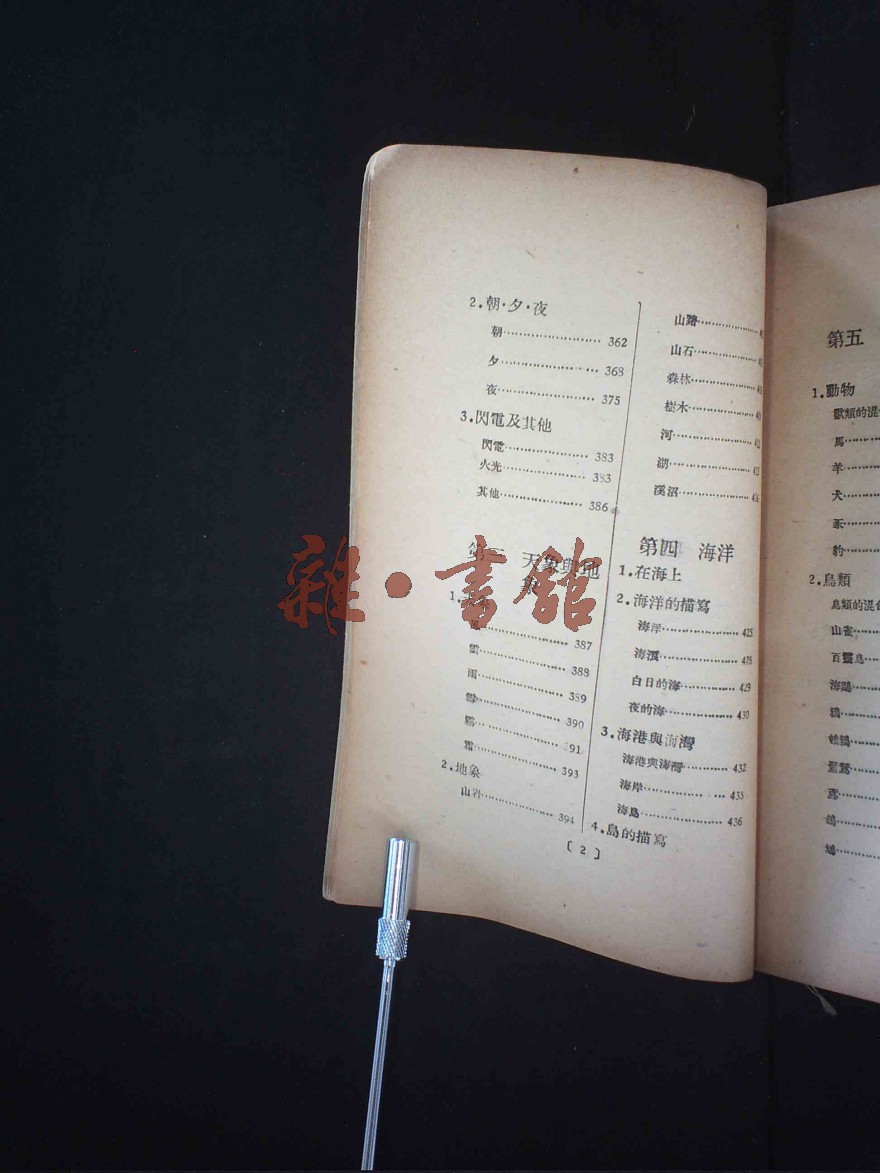 2.朝·夕·夜
朝 362
夕 368
夜 375
3.閃電及其他
閃電 383
火光 383
其他 386
第三 天象與地
象
1.天象
風 387
雲 388
雨 389
雪 390
霧 391
霜 393
2.地象
山岩 394
山路
山石
森林
樹木
河
湖
溪沼
第四 海洋
1.在海上
2.海洋的描寫
海洋 425
海濱 428
白日的海 429
夜的海 430
3.海港與海灣
海港與海灣 432
海岸 435
海島 436
4.島的描寫
〔2〕
第五
1.動物
獸類的混合
馬
羊
犬
豕
豹
2.鳥類
鳥類的混合
山雀
百靈鳥
海鷗
鴉
鴛鴦
鳶
鴿
鳩
雜·書館